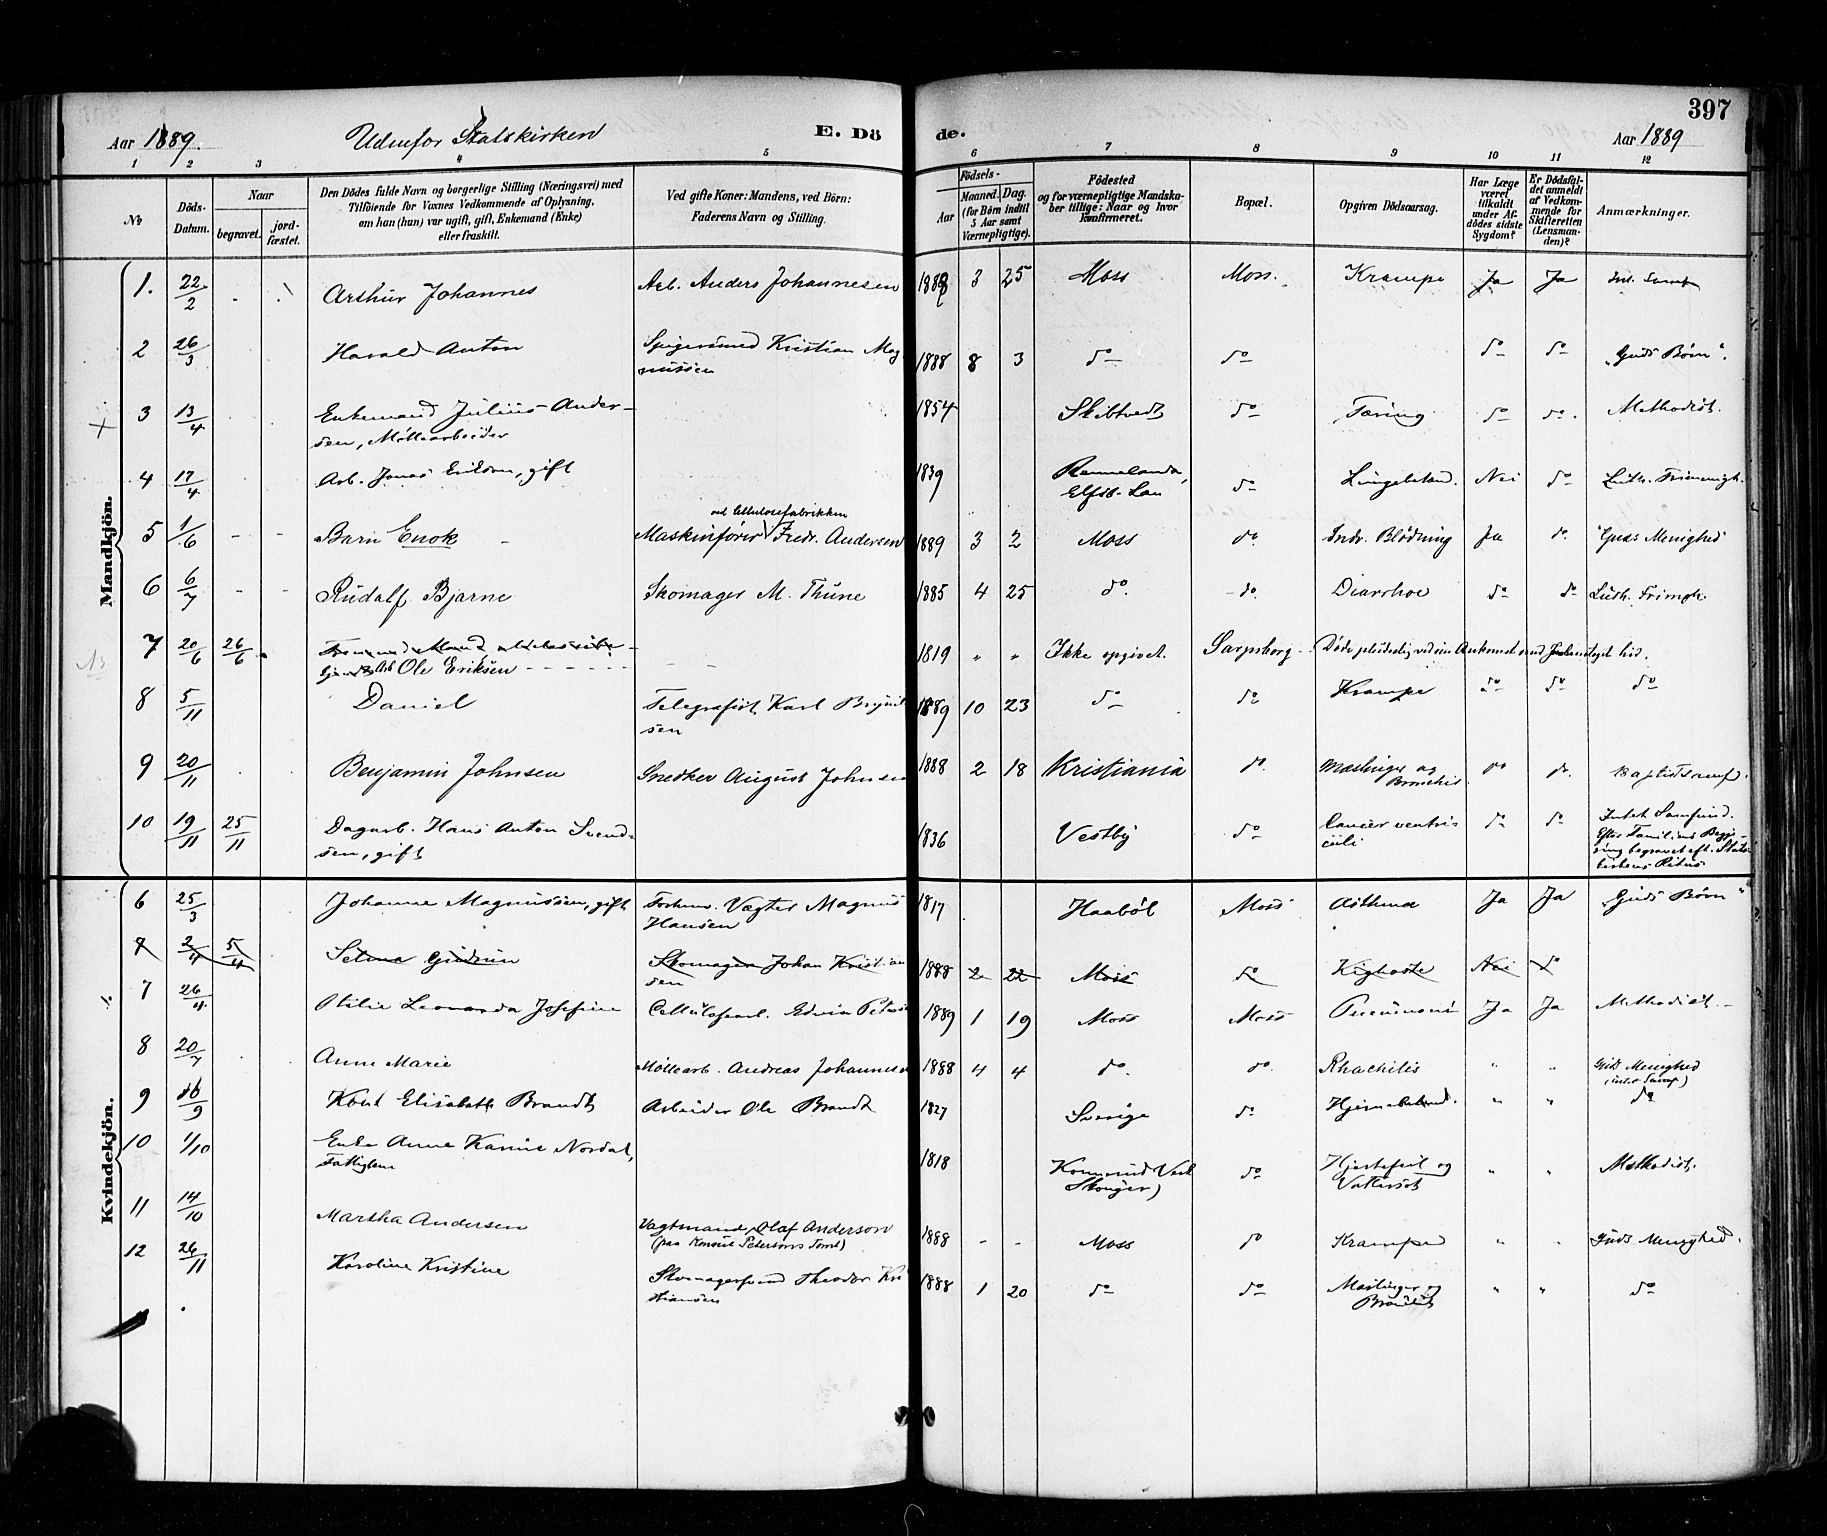 397
Aar 1889. Udenfor Statskirken E. Dö de. Aar 1889
1 2 3 4 5 6 7 8 9 10 11 12
No
Döds-Datum.
Naar
begravet.
jord-fæstet.
Den Dödes fulde Navn og borgerlige Stilling (Næringsvei) med
Tilföiende for Voxnes Vedkommende af Oplysning,
om han (hun) var ugift, gift, Enkemand (Enke)
eller fraskilt.
Ved gifte Koner: Mandens, ved Börn:
Faderens Navn og Stilling.
Födsels-
Aar
Maaned. Dag.
(for Börn indtil
5 Aar samt
Værnepligtige).
Födested
og for værnepligtige Mandska-
ber tillige: Naar og hvor
konfirmeret.
Bopæl.
Opgiven Dödsaarsag.
Har Læge
været
tilkaldt
under Af-
dödes sidste
Sygdom?
Er Dödsfal-
det anmeldt
af Vedkom-
mende for
Skifteretten
(Lensman-
den)?
Anmærkninger.
Mandkjön.
1. 22/2 Arthur Johannes Arb. Anders Johannesen 1888 3 25 Moss Moss. Krampe Ja Ja Int. Samf
2 26/3 Harald Anton Spigersmed Kristian Mag-
nussen 1888 8 3 do do do do "Guds Börn".
3 13/4 Enkemand Julius Ander-
sen, Möllearbeider 1854 Skibtvedt do Tæring do do. Methodist.
4 17/4 Arb. Jonas Erikson, gift 1839 Rannelanda,
Elfsb. Län do Lungebetænd. Nei do Luth. Frimenigh.
5 1/6 Barn Enok Maskinförer ved Cellulosefabrikken Fredr. Andersen 1889 3 2 Moss do. Indr. Blödning Ja do. "Guds Menighed
6 6/7 Rudolf Bjarne Skomager M. Thune 1885 4 25 do. do. Diarrhoe do do Luth. Frimgh.
7 20/6 26/6 Arb Ole Eriksen 1819 " " Ikke opgivet. Sarpsborg Döde pludselig ved sin Ankomst med Jernbanetoget hid.
8 5/11 Daniel Telegrafist Karl
sen 1889 10 23 do do Krampe do do do
9 20/11 Benjamin Johnsen Snedker August Johnsen 1888 2 18 Kristiania do. Mæslinger og
Bronchit. do do. Baptistsamf.
10 19/11 25/11 Dagarb. Hans Anton Svend-
sen, gift 1836 Vestby do Cancer ventri-
culi do do Intet Samfund.
Efter Familiens Begjæ-
ring begravet eft. Stats-
kirkens Ritus
Kvindekjön.
6 25/3 Johanne Magnussen, gift Forhenv. Vægter Magnus
Hansen 1817 Haaböl Moss Asthma Ja Ja "Guds Börn"
7 2/4 5/4 Selma Gudrun Skomager Johan Kristian
sen 1888 2 22 Moss do Kighoste Nei do
7 26/4 Otilie Leonarda Josefine Cellulosearb. Edvin Peters 1889 1 19 Moss Moss Pneumoni Ja Ja Methodist
8 20/7 Anne Marie Möllearb. Andreas Johannesen 1888 4 4 do. do. Rhachitis " " Guds Menighed
(intet Samf)
9 16/9 Kone Elisabeth Brandt Arbeider Ole Brandt 1827 Sverige do Hjernebetænd. " " do
10 1/10 Enke Anne Karine Nordal,
Fattiglem 1818
do Hjertefeil og
Vattersot " " Methodist.
11 14/10 Martha Andersen Vagtmand Olaf Anderson
(paa Konsul Petersons Tomt) 1888 - - Moss do Krampe " " Guds Menighed.
12 26/11 Karoline Kristine Skomagersvend Theodor Kri
stiansen 1888 1 20 do do Mæslinger og
Bronchit " " do